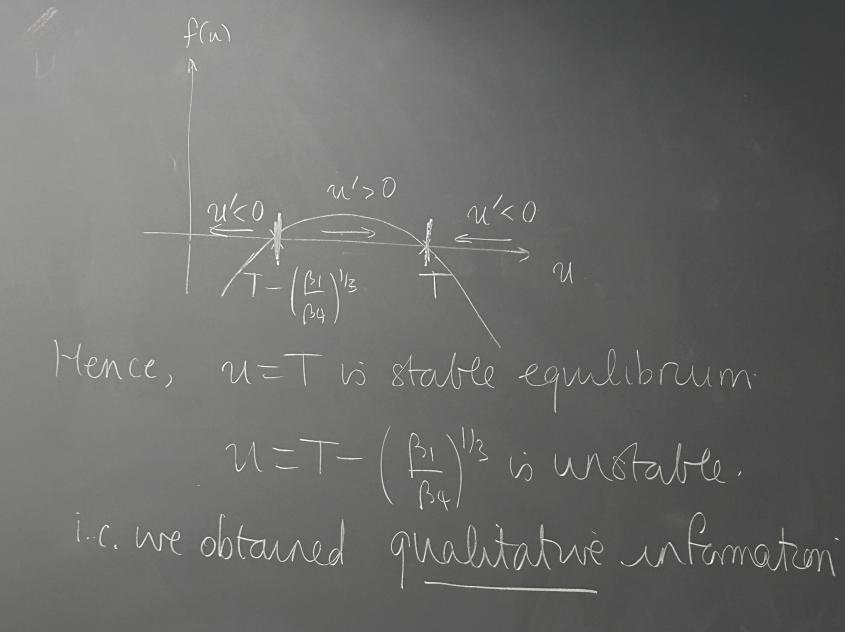 f(u)
u'<0 u'>0 u'<0
u
T-(β1/β4)^1/3 T
Hence, u=T is stable equilibrium.
u=T-(β1/β4)^1/3 is unstable.
i.e. we obtained qualitative information